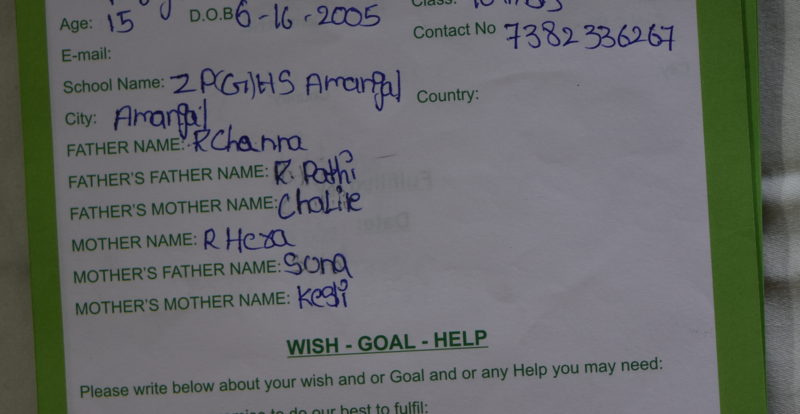 Age: 15 D.O.B 6-16-2005 Class: 10
Contact No 7382336267
E-mail:
School Name: ZP(G)HS Amangal
Country:
City: Amangal
FATHER NAME: R Channa
FATHER'S FATHER NAME: R. Pathi
FATHER'S MOTHER NAME:
MOTHER NAME: R Hera
MOTHER'S FATHER NAME: Sona
MOTHER'S MOTHER NAME:
WISH - GOAL - HELP
Please write below about your wish and or Goal and or any Help you may need:
to do our best to fulfil: